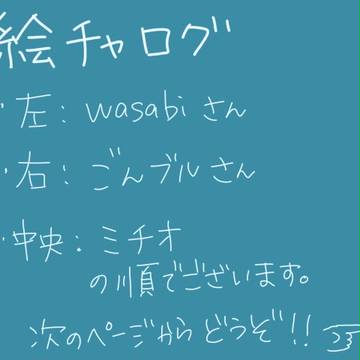 絵チャログ
・左：wasabiさん
・右：ごんブルさん
・中央：ミチオ
の順でございます。
次のページからどうぞ!!